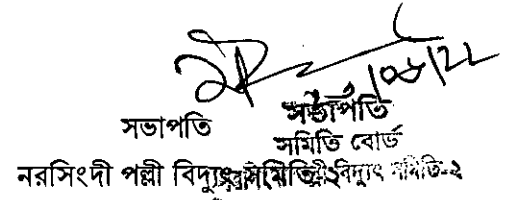 /০৮/২২
সভাপতি
সভাপতি
সমিতি বোর্ড
নরসিংদী পল্লী বিদ্যুৎ সমিতি-২
বিদ্যুৎ সমিতি-২